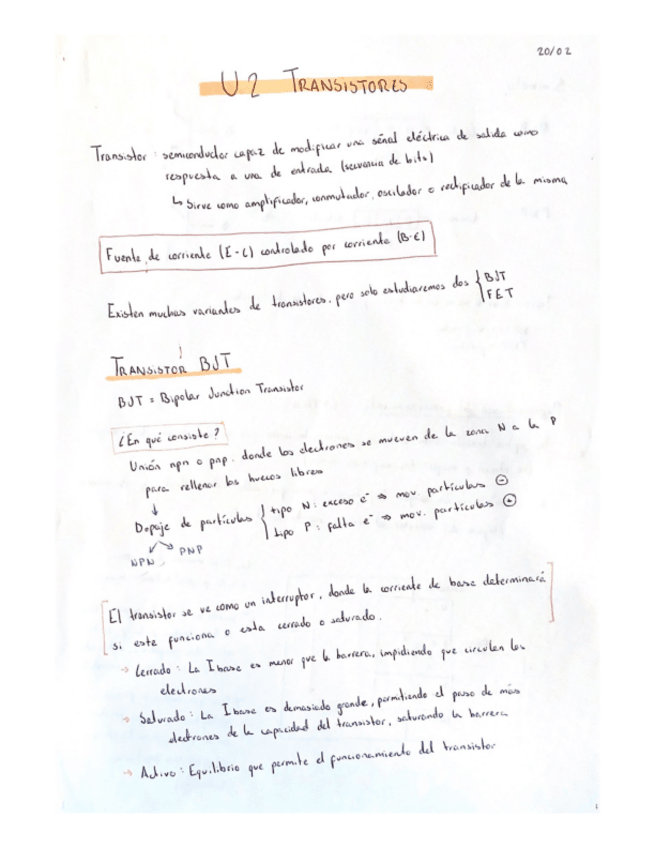 20/02
U.2 TRANSISTORES
Transistor : semiconductor capaz de modificar una señal eléctrica de salida como
respuesta a una de entrada (secuencia de bits)
↳ Sirve como amplificador, conmutador, oscilador o rectificador de la misma
Fuente de corriente (E-C) controlado por corriente (B-E)
Existen muchas variantes de transistores, pero solo estudiaremos dos { BJT
FET
TRANSISTOR BJT
BJT = Bipolar Junction Transistor
¿En qué consiste?
Unión npn o pnp. donde los electrones se mueven de la zona N a la P
para rellenar los huecos libres
↓
Dopaje de partículas { tipo N: exceso e⁻ ⇒ mov. partículas ⊖
tipo P: falta e⁻ ⇒ mov. partículas ⊕
NPN PNP
El transistor se ve como un interruptor, donde la corriente de base determinará
si este funciona o esta cerrado o saturado.
→ Cerrado : La I base es menor que la barrera, impidiendo que circulen los
electrones
→ Saturado : La I base es demasiado grande, permitiendo el paso de más
electrones de la capacidad del transistor, saturando la barrera
→ Activo : Equilibrio que permite el funcionamiento del transistor